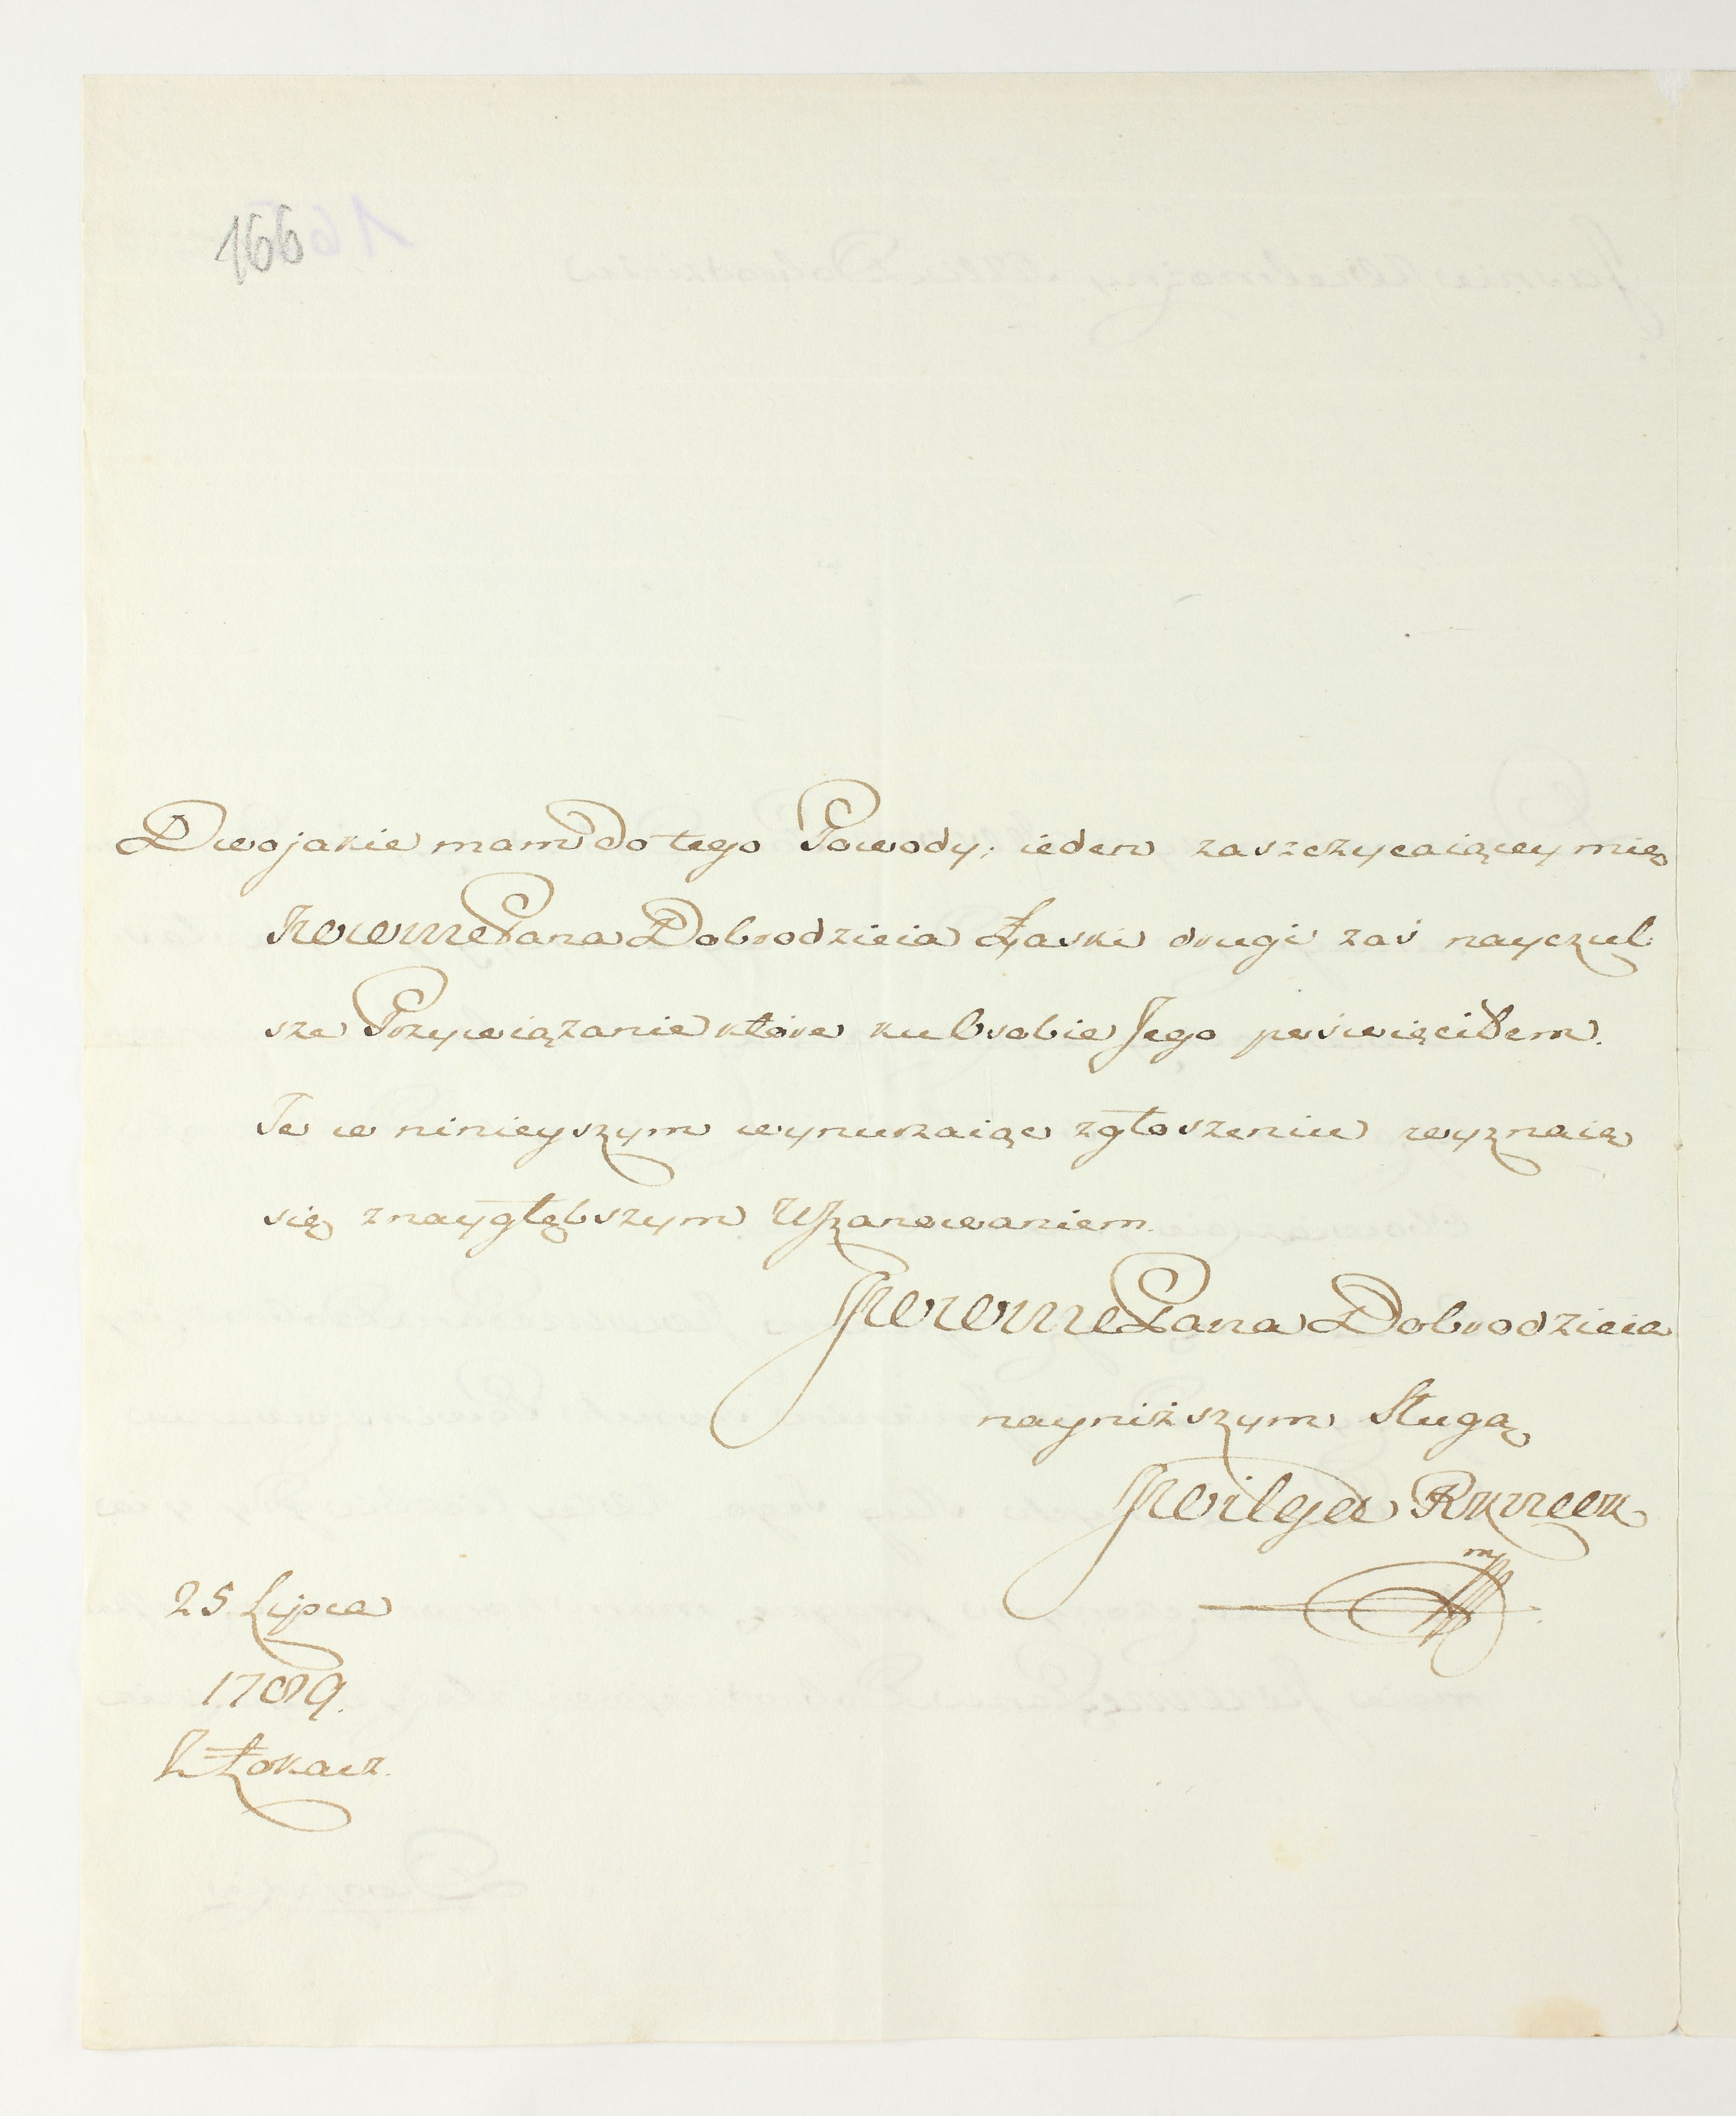 166
Dwojakie mam do tego Powody; ieden zaszczycaiącey mię
JWWMPana Dobrodzieia Łaski drugi zaś nayczul
sze Przywiązanie które ku Osobie Jego poświęciłem.
Te w ninieyszym wynurzaiąc zgłoszeniu wyznaię
się z naygłębszym Uszanowaniem.
JWWMPana Dobrodzieia
nayniższym Sługą
JWilga
mp
25. Lipca
1789.
Z Łokacz.